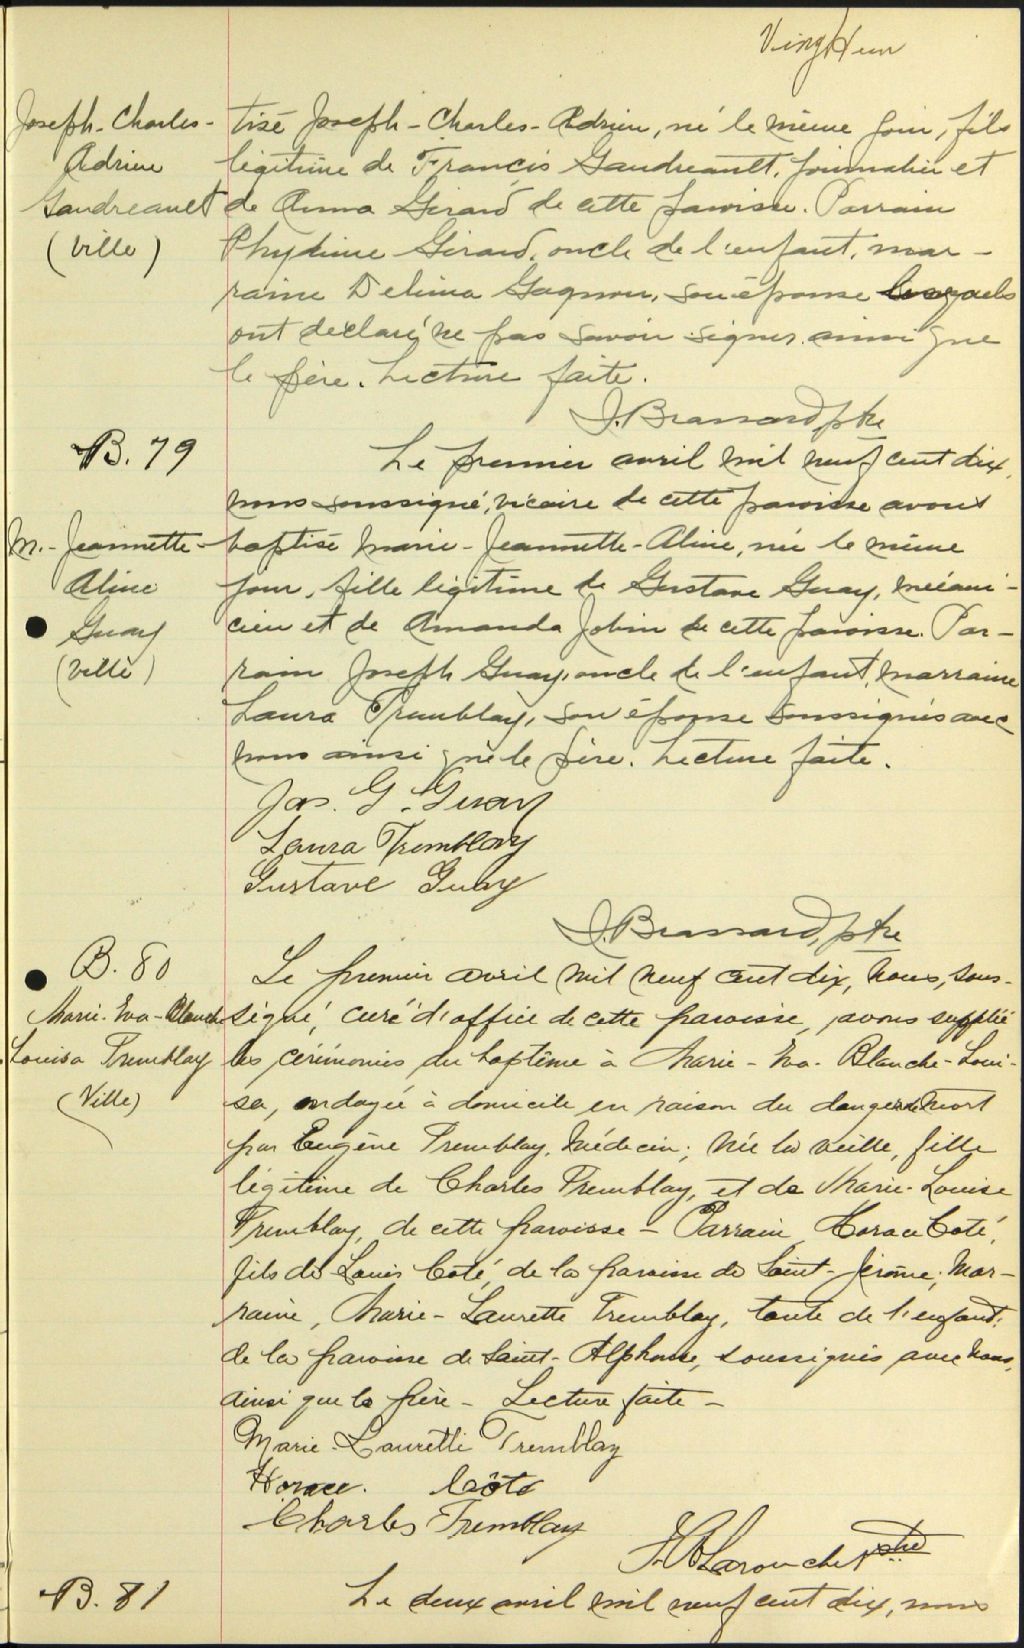 Vingt Hun
Joseph-Charles-
Adrien
Gaudreault
(Ville)
tisé Joseph-Charles-Adrien, né le même jour, fils
légitime de Francis Gaudreault, journalier et
de Anna Girard de cette paroisse. Parrain
Phydime Girard, oncle de l'enfant, mar-
raine Delima Gagnon, son épouse lesquels
ont déclaré ne pas savoir signer ainsi que
le père. Lecture faite.
J. Brassard, ptre
B. 79
M.-Jeannette-
Aline
Guay
(ville)
Le premier avril mil neuf cent dix,
nous soussigné, vicaire de cette paroisse avons
baptisé Marie-Jeannette-Aline, née le même
jour, fille légitime de Gustave Guay, mécani-
cien et de Amanda Jobin de cette paroisse. Par-
rain Joseph Guay, oncle de l'enfant, marraine
Laura Tremblay, son épouse soussignés avec
nous ainsi que le père. Lecture faite.
Jos. G. Guay
Laura Tremblay
Gustave Guay
J. Brassard, ptre
B. 80
Marie-Eva-Blanche
Louisa Tremblay
(Ville)
Le premier avril mil neuf cent dix, nous, sous-
signé, curé d'office de cette paroisse, avons supplié
les cérémonies du baptême à Marie-Eva-Blanche-Loui-
sa, ondoyée à domicile en raison du danger de mort
par Eugène Tremblay, médecin; née la veille, fille
légitime de Charles Tremblay, et de Marie-Louise
Tremblay, de cette paroisse - Parrain, Horace Coté,
fils de Louis Coté, de la paroisse de Saint-Jérôme; Mar-
raine, Marie-Laurette Tremblay, tante de l'enfant,
de la paroisse de Saint-Alphonse, soussignés avec nous,
ainsi que le père - Lecture faite -
Marie-Laurette Tremblay
Horace. Côté
Charles Tremblay
Larouche ptre
B. 81
Le deux avril mil neuf cent dix, nous